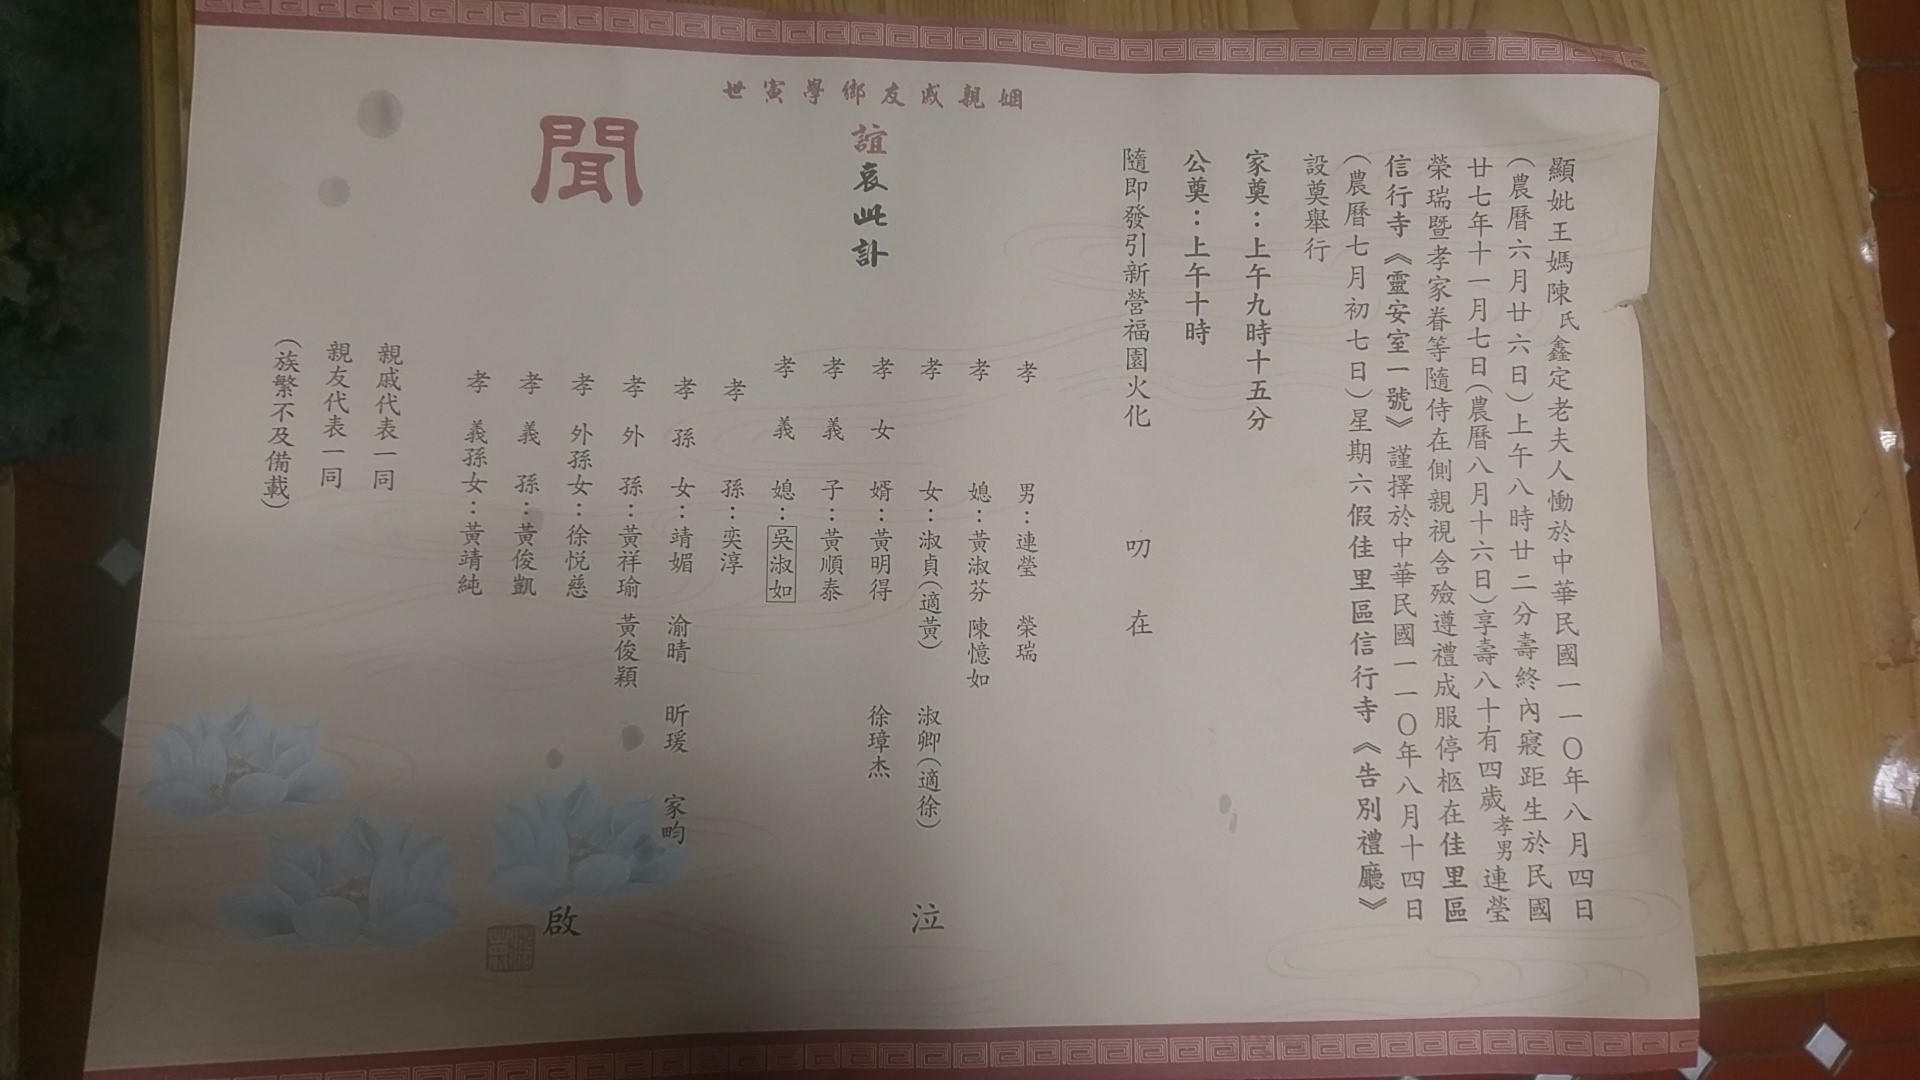 顯妣王媽陳氏鑫定老夫人慟於中華民國一一〇年八月四日
(農曆六月廿六日)上午八時廿二分壽終內寢距生於民國
廿七年十一月七日(農曆八月十六日)享壽八十有四歲孝男連瑩
榮瑞暨孝家眷等隨侍在側親視含殮遵禮成服停柩在佳里區
信行寺《靈安室一號》謹擇於中華民國一一〇年八月十四日
(農曆七月初七日)星期六假佳里區信行寺《告別禮廳》
設奠舉行
家奠：上午九時十五分
公奠：上午十時
隨即發引新營福園火化
叨在
姻親戚友鄉學寅世
誼哀此訃
聞
孝男：連瑩 榮瑞
孝媳：黃淑芬 陳憶如
孝女：淑貞(適黃) 淑卿(適徐)
孝女婿：黃明得 徐璋杰
孝義子：黃順泰
孝義媳：吳淑如
孝孫：奕淳
孝孫女：靖媚 渝晴 昕瑗 家畇
孝外孫：黃祥瑜 黃俊穎
孝外孫女：徐悦慈
孝義孫：黃俊凱
孝義孫女：黃靖純
泣
啟
親戚代表一同
親友代表一同
(族繁不及備載)